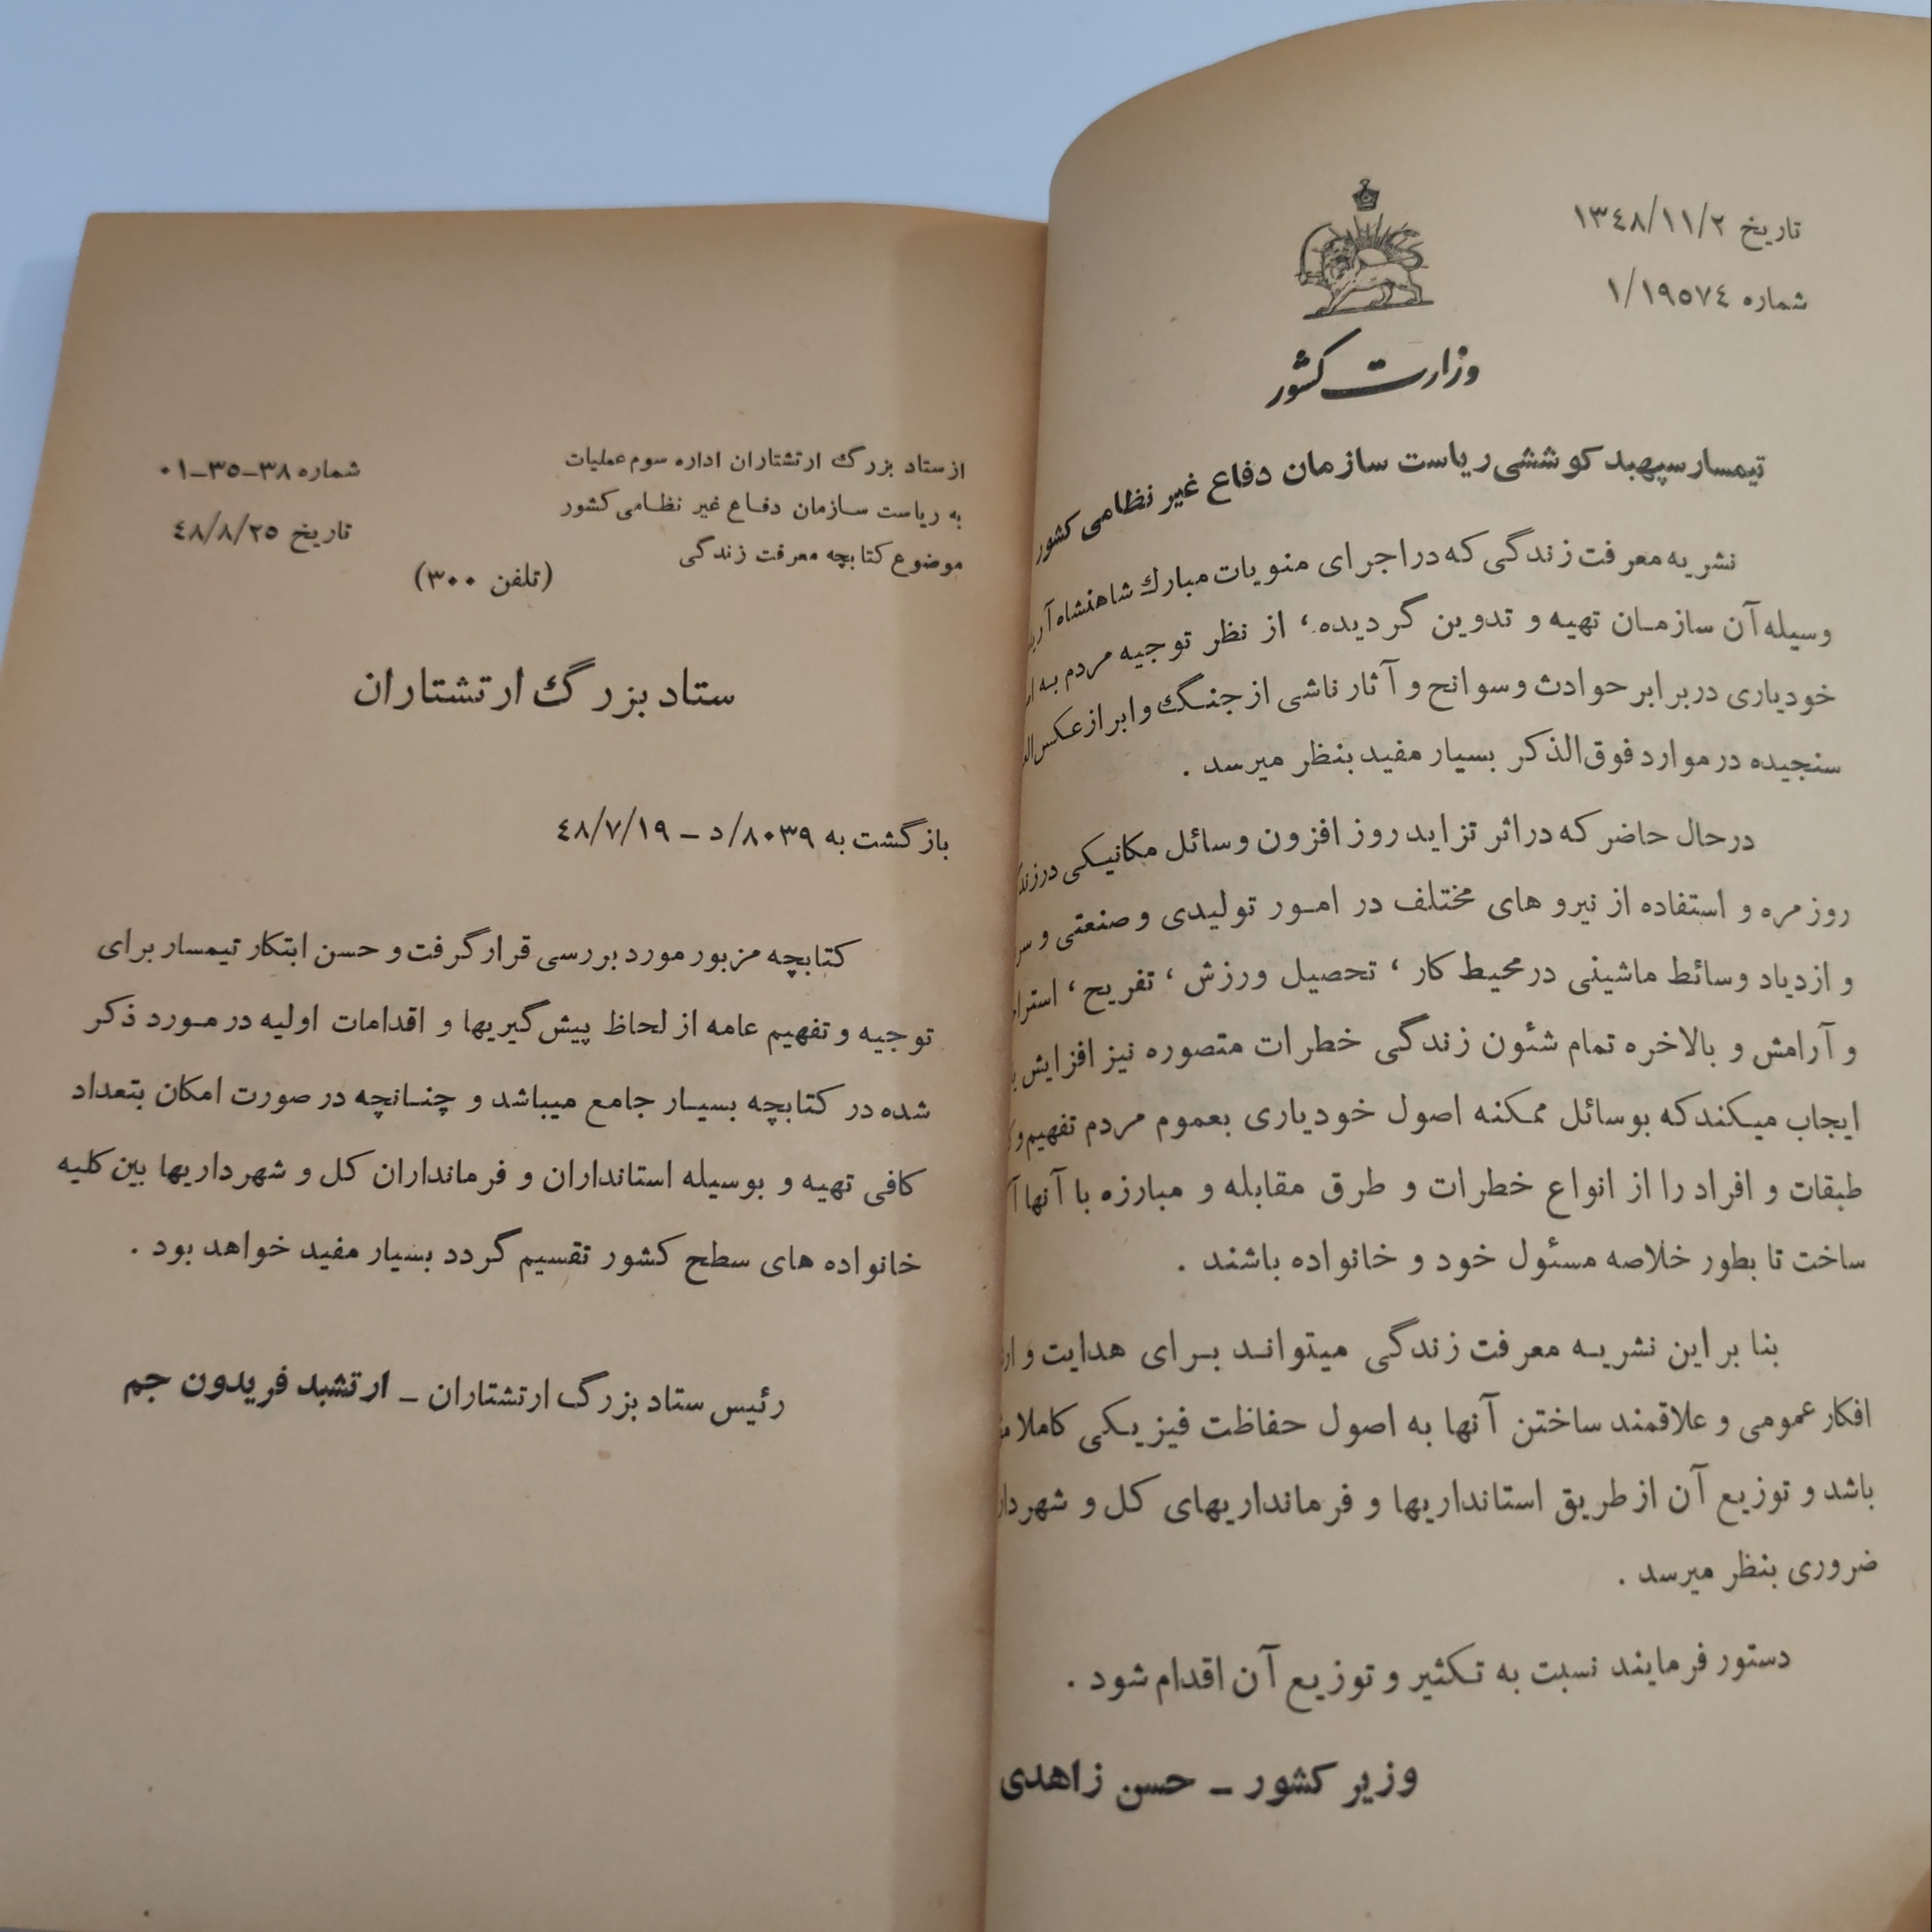 تاریخ ۱۳۴۸/۱۱/۲
شماره ۱/۱۹۵۷۴
وزارت کشور
تیمسار سپهبد کوششی ریاست سازمان دفاع غیر نظامی کشور
نشریه معرفت زندگی که در اجرای منویات مبارك شاهنشاه
وسیله آن سازمان تهیه و تدوین گردیده، از نظر توجیه مردم به
خودیاری در برابر حوادث و سوانح و آثار ناشی از جنگ و ابراز عکس
سنجیده در موارد فوق‌الذکر بسیار مفید بنظر میرسد .
در حال حاضر که در اثر تزاید روز افزون وسائل مکانیکی
روزمره و استفاده از نیرو های مختلف در امور تولیدی و صنعتی و
و ازدیاد وسائط ماشینی در محیط کار ، تحصیل ورزش ، تفریح ،
و آرامش و بالاخره تمام شئون زندگی خطرات متصوره نیز افزایش
ایجاب میکند که بوسائل ممکنه اصول خودیاری بعموم مردم تفهیم و
طبقات و افراد را از انواع خطرات و طرق مقابله و مبارزه با آنها
ساخت تا بطور خلاصه مسئول خود و خانواده باشند .
بنا بر این نشریه معرفت زندگی میتواند برای هدایت و
افکار عمومی و علاقمند ساختن آنها به اصول حفاظت فیزیکی کاملا
باشد و توزیع آن از طریق استانداریها و فرمانداریهای کل و
ضروری بنظر میرسد .
دستور فرمایند نسبت به تکثیر و توزیع آن اقدام شود .
وزیر کشور ـ حسن زاهدی
از ستاد بزرگ ارتشتاران اداره سوم عملیات
به ریاست سازمان دفاع غیر نظامی کشور
موضوع کتابچه معرفت زندگی
شماره ۳۸-۳۵-۰۱
تاریخ ۴۸/۸/۲۵
(تلفن ۳۰۰)
ستاد بزرگ ارتشتاران
بازگشت به ۸۰۳۹/د ـ ۴۸/۷/۱۹
کتابچه مزبور مورد بررسی قرار گرفت و حسن ابتکار تیمسار برای
توجیه و تفهیم عامه از لحاظ پیش‌گیریها و اقدامات اولیه در مورد ذکر
شده در کتابچه بسیار جامع میباشد و چنانچه در صورت امکان بتعداد
کافی تهیه و بوسیله استانداران و فرمانداران کل و شهرداریها بین کلیه
خانواده های سطح کشور تقسیم گردد بسیار مفید خواهد بود .
رئیس ستاد بزرگ ارتشتاران ـ ارتشبد فریدون جم